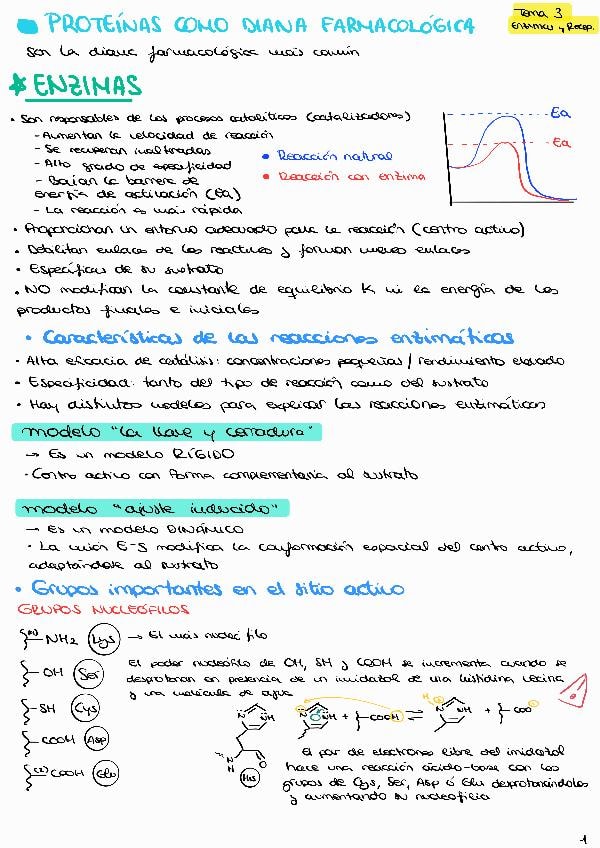 PROTEÍNAS COMO DIANA FARMACOLÓGICA
Tema 3
Enzimas y Recep.
Son la diana farmacológica más común
ENZIMAS
• Son responsables de los procesos catalíticos (catalizadores)
- Aumentan la velocidad de reacción
- Se recuperan inalteradas
- Alto grado de especificidad
- Bajan la barrera de
energía de activación (Ea)
- La reacción es más rápida
• Reacción natural
• Reacción con enzima
Ea
Ea
• Proporcionan un entorno adecuado para la reacción (centro activo)
• Debilitan enlaces de los reactivos y forman nuevos enlaces
• Específicas de su sustrato
• NO modifican la constante de equilibrio K ni la energía de los
productos finales e iniciales
• Características de las reacciones enzimáticas
• Alta eficacia de catálisis: concentraciones pequeñas / rendimiento elevado
• Especificidad: tanto del tipo de reacción como del sustrato
• Hay distintos modelos para explicar las reacciones enzimáticas
modelo "la llave y cerradura"
→ Es un modelo RÍGIDO
- Centro activo con forma complementaria al sustrato
modelo "ajuste inducido"
→ Es un modelo DINÁMICO
• La unión E-S modifica la conformación espacial del centro activo,
adaptándose al sustrato
• Grupos importantes en el sitio activo
GRUPOS NUCLEÓFILOS
NH2 Lys → El más nucleófilo
OH Ser
SH Cys
COOH Asp
COOH Glu
El poder nucleófilo de OH, SH y COOH se incrementa cuando se
desprotonan en presencia de un imidazol de una histidina vecina
y una molécula de agua
N NH N NH + COOH ⇌ N NH + COO
H
O
N
H
His
El par de electrones libre del imidazol
hace una reacción ácido-base con los
grupos de Cys, Ser, Asp ó Glu desprotonándolos
y aumentando su nucleofilia
1